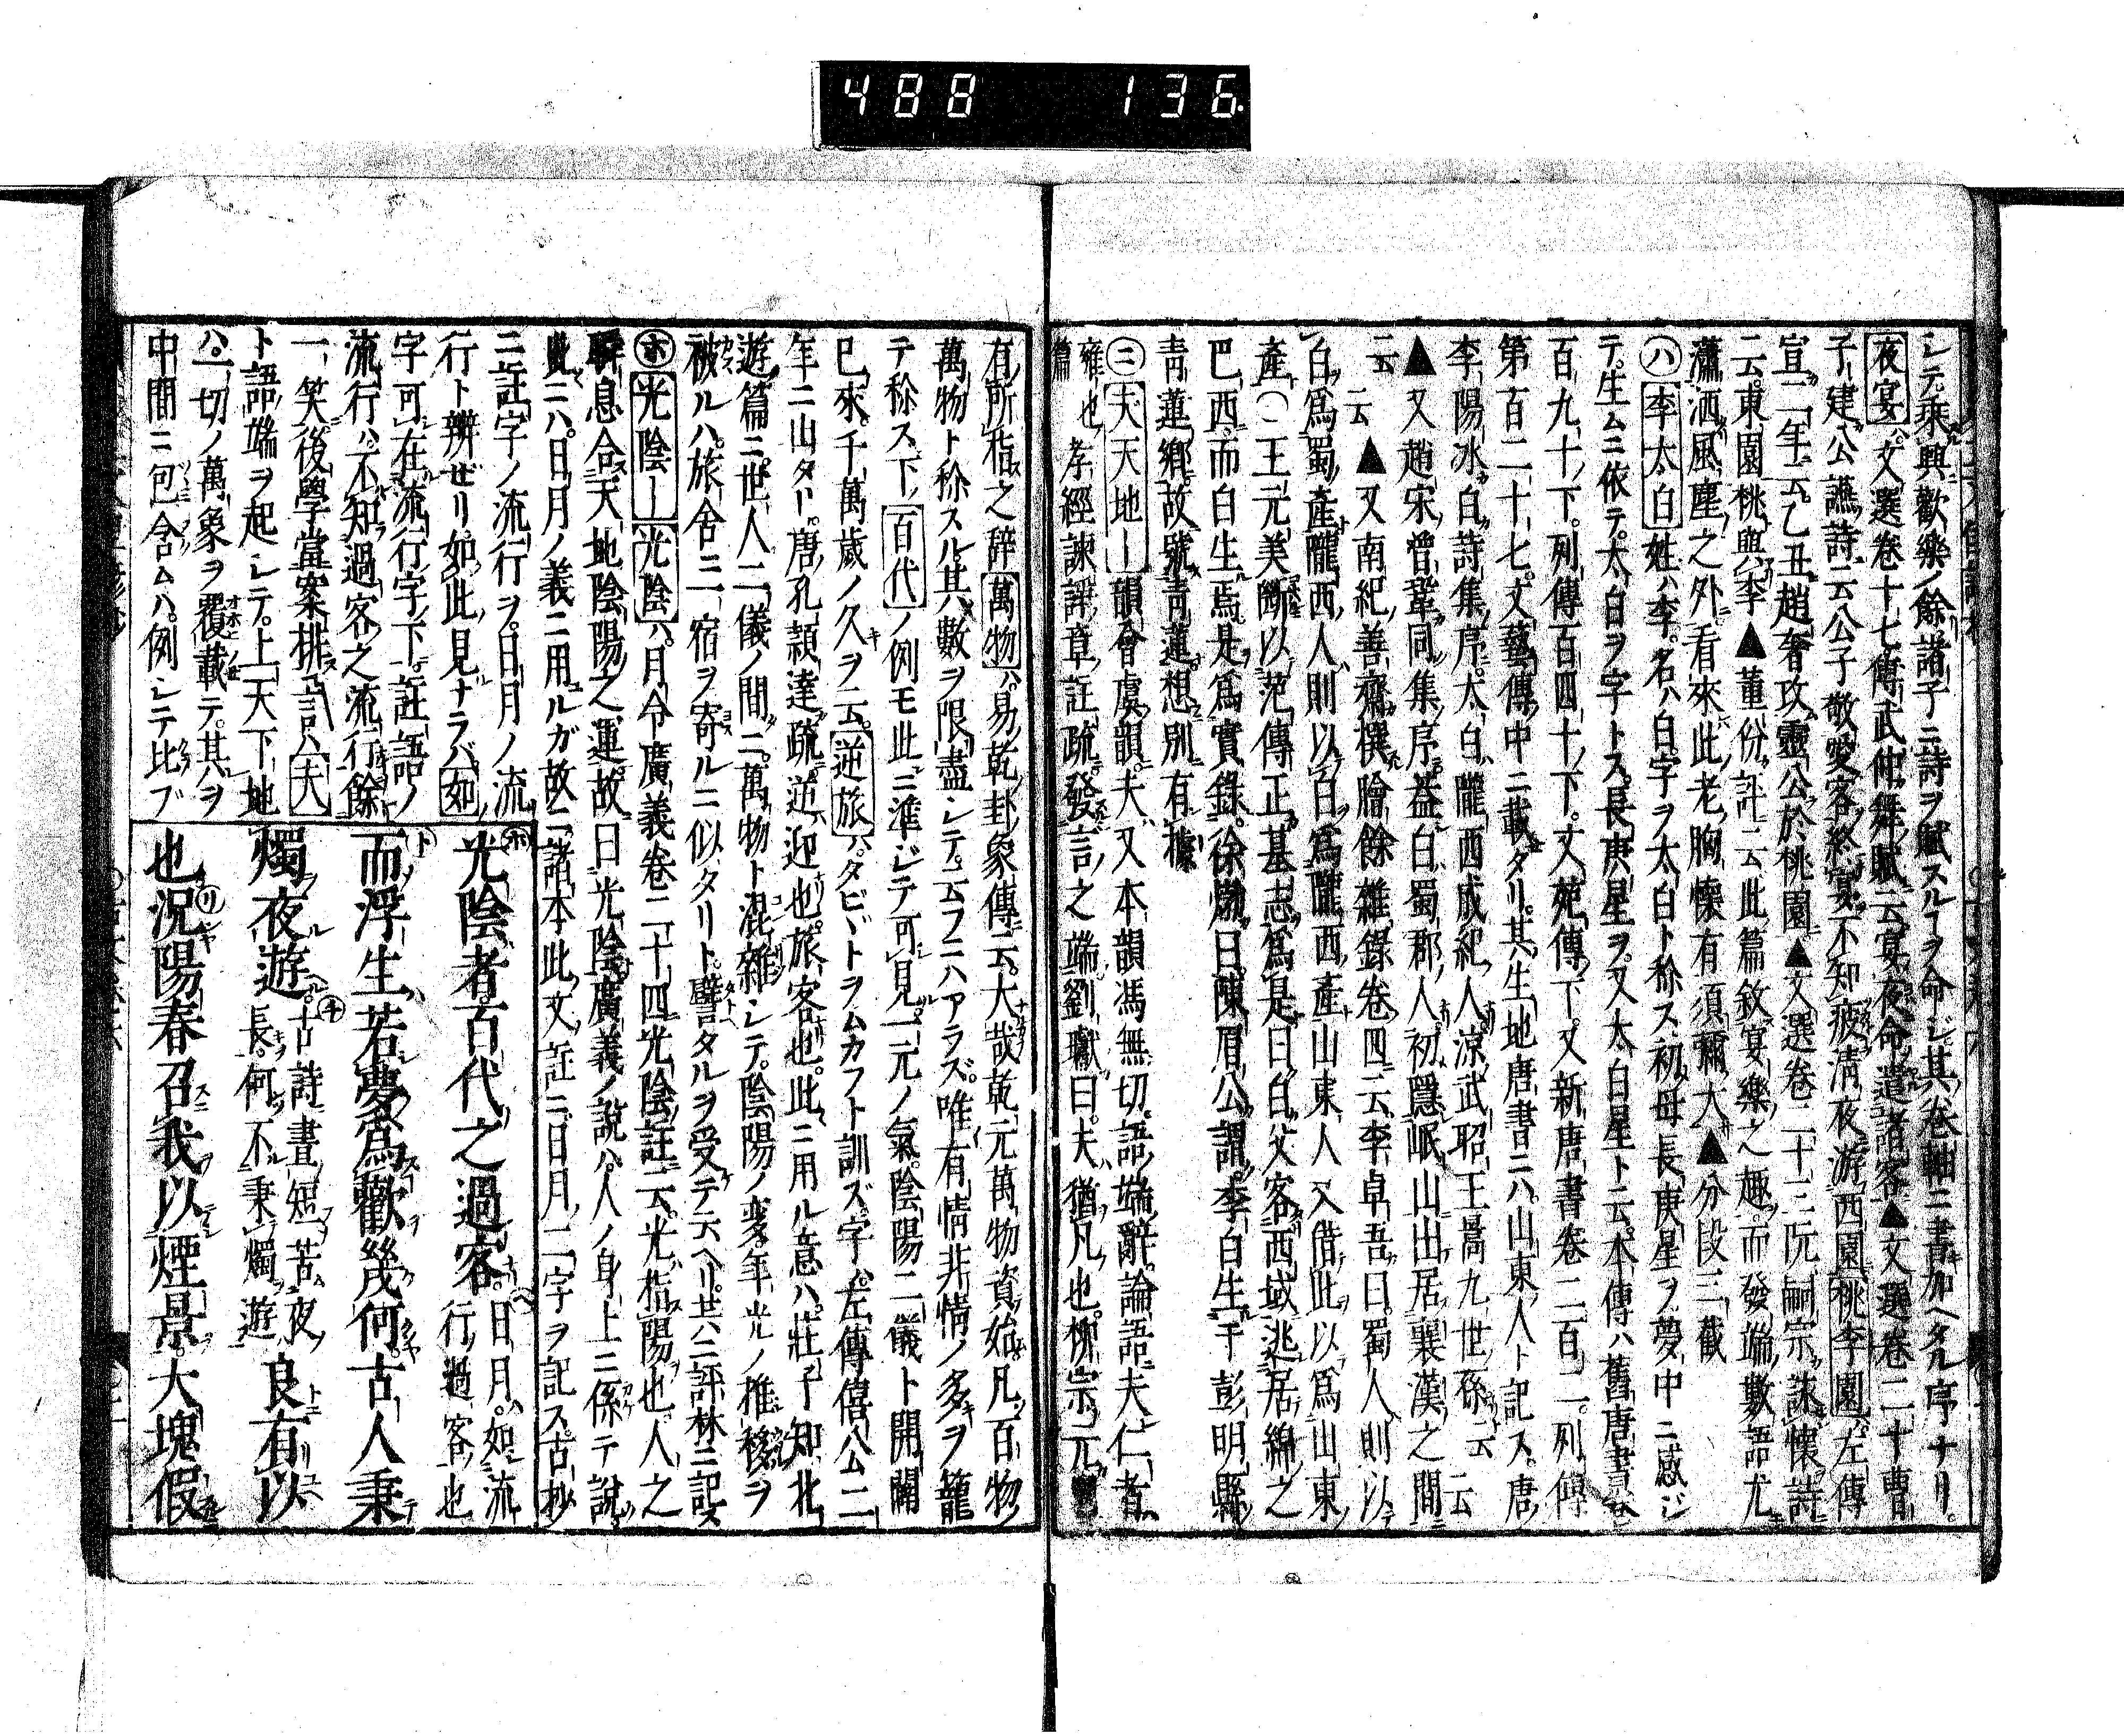 488 136
シテ乘興歡樂ノ餘諸子ニ詩ヲ賦スルヿヲ命ジ其卷軸ニ書加ヘタル序ナリ。
夜宴 文選卷十七傅武仲舞賦云宴夜命遣諸客▲文選卷二十曹
子建公讌詩云公子敬愛客終宴不知疲清夜游西園桃李園ハ左傳
宣二年云乙丑趙奢攻靈公於桃園▲文選卷二十三阮嗣宗詠懷詩
云東園桃與李▲董份評云此篇敘宴樂之趣而發端數語尤
瀟洒風塵之外看來此老胸懷有須彌大▲分段三截
ハ 李太白 姓ハ李名ハ白字ヲ太白ト称ス初母長庚星ヲ夢中ニ感ジ
テ生ムニ依テ太白ヲ字トス長庚星ヲ又太白星ト云本傳ハ舊唐書卷
百九十下列傳百四十下文苑傳下又新唐書卷二百二列傳
第百二十七文藝傳中ニ載タリ其生地唐書ニハ山東人ト記ス唐
李陽冰白詩集序太白隴西成紀人涼武昭王暠九世孫云云
▲又趙宋曾鞏同集序益白蜀郡人初隱岷山出居襄漢之間
云云▲又南紀善齋撰膾餘雜錄卷四云李卓吾曰蜀人則以
白爲蜀產隴西人則以白爲隴西產山東人又借此以爲山東
產(一)王元美斷以范傳正墓志爲是曰白父客西域逃居綿之
巴西而白生焉是爲實錄徐𤊹曰陳眉公謂李白生于彭明縣
靑蓮鄉故號靑蓮想別有據
ニ 夫天地— 韻會虞韻夫又本韻馮無切語端辭論語夫仁者
雍也篇孝經諫諍章註疏發言之端劉瓛曰夫猶凡也柳宗元
有所指之辭 萬物ハ易乾卦彖傳云大哉乾元萬物資始凡百物
萬物ト称スル其數ヲ限盡シテ云フニハアラズ唯有情非情ノ多キヲ籠
テ称ス下百代ノ例モ此ニ準ジテ可見一元ノ氣陰陽二儀ト開闢
已來千萬歲ノ久ヲ云逆旅ハタビヾトラムカフト訓ズ字ハ左傳僖公二
年ニ出タト唐孔穎達疏逆迎也旅客也此ニ用ル意ハ莊子知北
遊篇ニ世人二儀ノ間ニ萬物ト混雜シテ陰陽ノ変年光ノ推移ヲ
被ルハ旅舍ニ一宿ヲ寄ルニ似タリト譬タルヲ受テ云ヘリ共ニ評林ニ記ス
ホ 光陰— 光陰ハ月令廣義卷二十四光陰註云光指陽也人之
瞬息合天地陰陽之運故曰光陰廣義ノ說ハ人ノ身上ニ係テ說
此ニハ日月ノ義ニ用ルガ故ニ諸本此文註ニ日月二字ヲ記ス古抄
ニ註字ノ流行ヲ日月ノ流
行ト辨ゼリ如此見ナラバ如
字可在流行字下註語ノ
流行ハ不知過客之流行餘
一笑後學當案排言ハ夫
ト語端ヲ起シテ上天下地
ハ一切ノ萬象ヲ覆載テ其ヲ
中間ニ包含ムハ例シテ比ブ
光陰者百代之過客日月如流行過客也
而浮生若夢爲歡幾何古人秉
燭夜遊古詩晝短苦夜長何不秉燭遊良有以
也況陽春召我以煙景大塊假